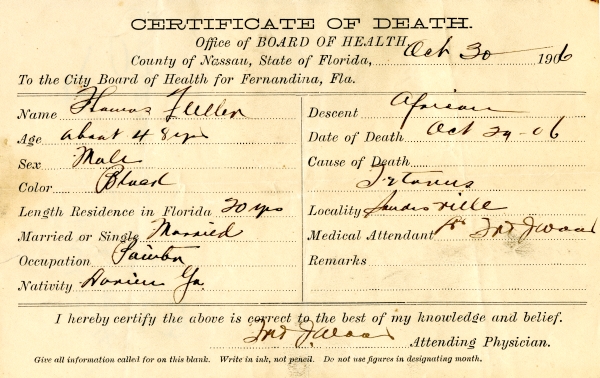 CERTIFICATE OF DEATH.
Office of BOARD OF HEALTH,
County of Nassau, State of Florida, Oct 30 1906
To the City Board of Health for Fernandina, Fla.
Name Thomas Fuller
Age about 48 yrs
Sex Male
Color Black
Length Residence in Florida 20 yrs
Married or Single Married
Occupation Painter
Nativity Darien Ga.
Descent African
Date of Death Oct 29-06
Cause of Death
Tetanus
Locality
Medical Attendant Dr
Remarks
I hereby certify the above is correct to the best of my knowledge and belief.
Attending Physician.
Give all information called for on this blank. Write in ink, not pencil. Do not use figures in designating month.